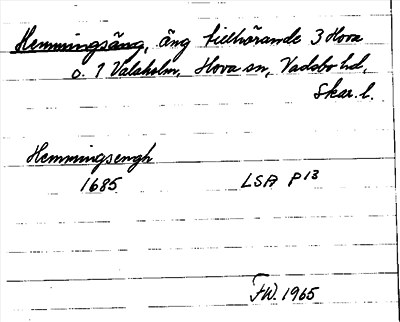 Hemmingsäng, äng tillhörande 3 Hova
o. 1 Valaholm, Hova sn, Vadsbo hd,
Skar. l.
Hemmingsengh
1685 LSA P 13
FW. 1965